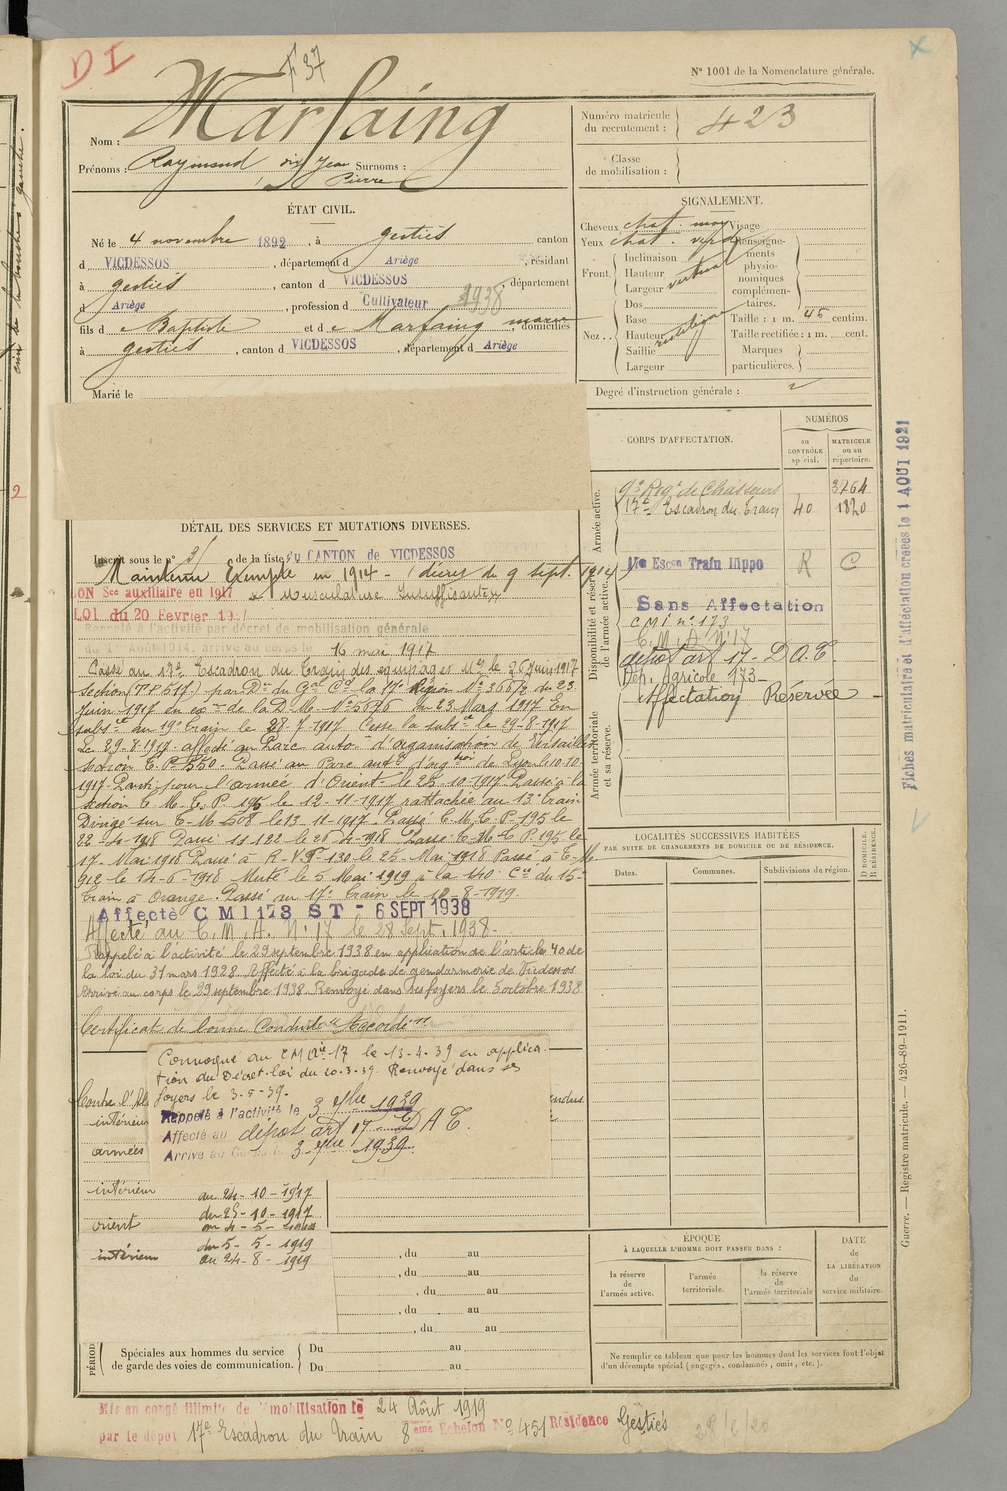 D I
F 37
N° 1001 de la Nomenclature générale.
Nom : Marfaing
Prénoms : Raymond dit Jean Surnoms :
Pierre
Numéro matricule
du recrutement : 423
Classe
de mobilisation :
ÉTAT CIVIL.
Né le 4 novembre 1892, à Gestiès canton
d VICDESSOS, département d Ariège, résidant
à Gestiès, canton d VICDESSOS, département
d Ariège, profession d Cultivateur 1938
fils d e Baptiste et d e Marfaing marie, domiciliés
à Gestiès, canton d VICDESSOS, département d Ariège
Marié le
SIGNALEMENT.
Cheveux chat. moy Visage
Yeux chat. verd Renseigne-
ments
physio-
nomiques
complémen-
taires.
Front. Inclinaison
Hauteur vertical
Largeur
Nez .. Dos
Base rectiligne
Hauteur
Saillie
Largeur
Taille : 1 m. 45 centim.
Taille rectifiée : 1 m. cent.
Marques
particulières.
Degré d'instruction générale : 2
CORPS D'AFFECTATION.
NUMÉROS
au
CONTRÔLE
spécial.
MATRICULE
ou au
répertoire.
Armée active.
9e Regt de Chasseurs 3264
17e Escadron du Train 40 1820
Disponibilité et réserve
de l'armée active.
Escon Train Hippo R C
Sans Affectation
CMI n° 173
C.M.A. N° 17
dépôt art 17 - D.A.T.
Dép. Agricole 173 -
Affectation Réservée
Armée territoriale
et sa réserve.
DÉTAIL DES SERVICES ET MUTATIONS DIVERSES.
Inscrit sous le n° 3 de la liste du CANTON de VICDESSOS
Maintenu Exempté en 1914 - (décret du 9 sept. 1914)
BON Sce auxiliaire en 1917 Musculature Insuffisante
LOI du 20 Fevrier 1917
Rappelé à l'activité par décret de mobilisation générale
du 1er Août 1914, arrivé au corps le 16 mai 1917
Passé au 17e Escadron du Train des équipages Mres le 26 Juin 1917
section (T.P. 517) par Don du Gal Ct la 17e Région N° 3667/2 du 23
Juin 1917 en exon de la D.M. N° 5676 du 23 Mars 1917 En
subsce au 19e Train le 28-7-1917 Cesse la subsce le 29-8-1917
Le 29-8-1917 affecté au Parc auto d'organisation de Versailles
section T.P. 550. Passé au Parc auto d'orgtion de Lyon le 10-10-
1917. Parti pour l'armée d'Orient le 25-10-1917 Passé à la
section T.M.E.P. 195 le 12-11-1917 rattachée au 13e Train
Dirigé sur T-M-508 le 13-11-1917. Passé T.M.E.P-195 le
22-4-1918 Passé 1s 122 le 26-4-1918 Passé T-M-E P. 195 le
17-Mai 1918 Passé à R-VF-130 le 25-Mai 1918 Passé à T-M
912 le 14-6-1918 Muté le 5 Mai 1919 à la 140e Cie du 15e
Train à Orange. Passé au 17e Train le 12-8-1919.
Affecté C M I 173 S T - 6 SEPT 1938
Affecté au C.M.A. N° 17 le 28 Sept. 1938.
Rappelé à l'activité le 29 septembre 1938 en application de l'article 40 de
la loi du 31 mars 1928. Affecté à la brigade de gendarmerie de Vicdessos
Arrivé au corps le 29 septembre 1938. Renvoyé dans ses foyers le 5 octobre 1938
Certificat de bonne Conduite "Accordé"
Convoqué au CMA N° 17 le 13-4-39 en applica-
tion du Décret-loi du 20-3-39. Renvoyé dans ses
foyers le 3-5-39.
Rappelé à l'activité le 3 7bre 1939
Affecté au dépôt art 17 - D A T.
Arrivé au Corps le 3 7bre 1939.
Contre l'Al
intérieur
armées
intérieur au 24-10-1917
orient du 25-10-1917
au 4-5-1919
intérieur du 5-5-1919
au 24-8-1919
, du au
, du au
, du au
, du au
, du au
PÉRIOD
Spéciales aux hommes du service
de garde des voies de communication.
Du au
Du au
LOCALITÉS SUCCESSIVES HABITÉES
PAR SUITE DE CHANGEMENTS DE DOMICILE OU DE RÉSIDENCE.
Dates.
Communes.
Subdivisions de région.
D DOMICILE.
R RÉSIDENCE.
ÉPOQUE
À LAQUELLE L'HOMME DOIT PASSER DANS :
la réserve
de
l'armée active.
l'armée
territoriale.
la réserve
de
l'armée territoriale
DATE
de
LA LIBÉRATION
du
service militaire.
Ne remplir ce tableau que pour les hommes dont les services font l'objet
d'un décompte spécial (engagés, condamnés, omis, etc.).
Fiches matriculaire et d'affectation créées le 1 AOUT 1921
Guerre. — Registre matricule. — 426-89-1911.
Mis en congé illimité de démobilisation le 24 Août 1919
par le dépôt 17e Escadron du Train 8ème Echelon N° 451 Résidence Gestiès